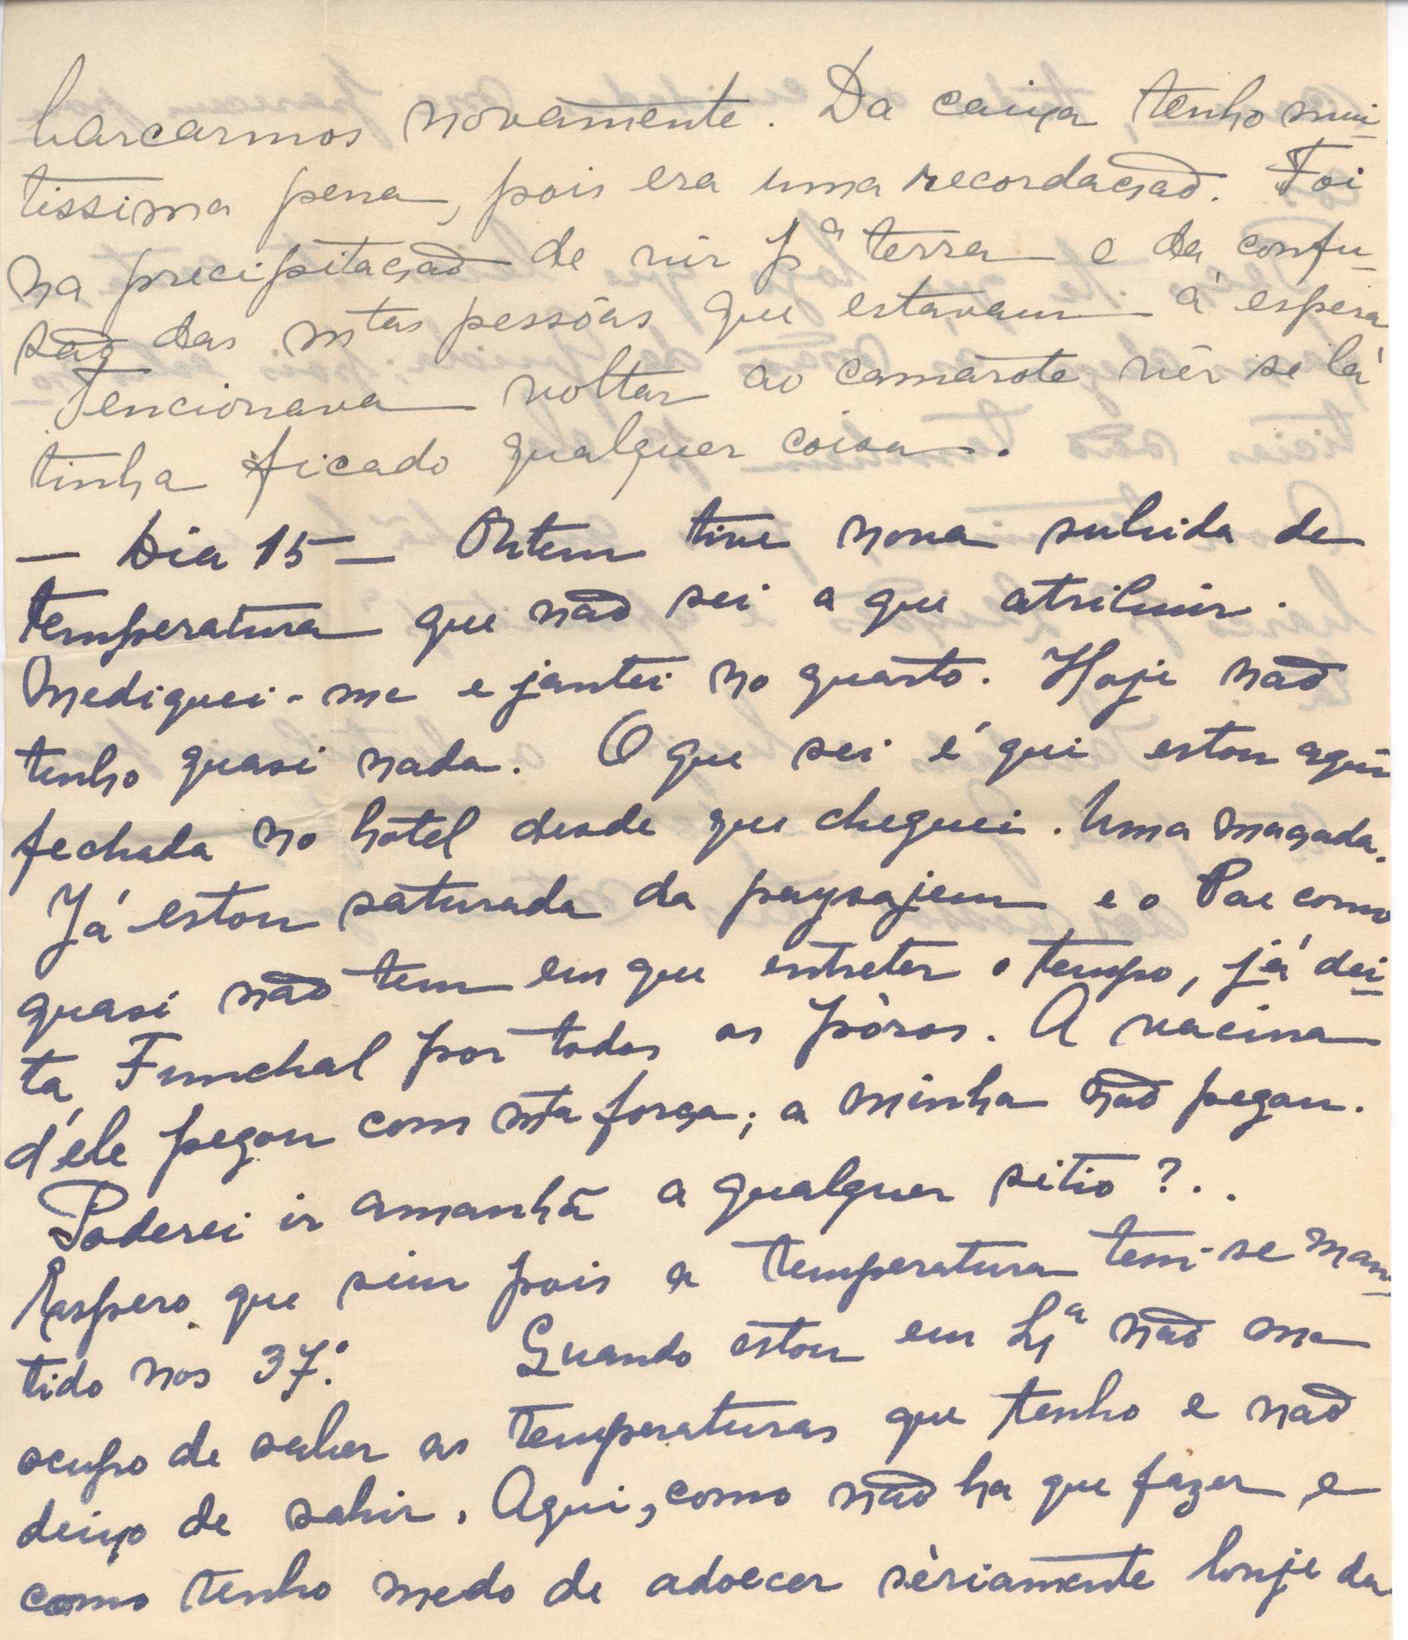 barcarmos novamente. Da caixa, tenho mui-
tissima pena, pois era uma recordação. Foi
na precipitação de vir pª terra e da confu-
são das mtas pessôas que estavam á espera
Tencionava voltar ao camarote vêr se lá
tinha ficado qualquer coisa.
— Dia 15 — Ontem tive nova subida de
temperatura que não sei a que atribuir.
Mediquei-me e jantei no quarto. Hoje não
tenho quasi nada. O que sei é que estou aqui
fechada no hotel desde que cheguei. Uma maçada.
Já estou saturada da paysajem e o Pae como
quasi não tem em que entreter o tempo, já dei-
ta Funchal por todos os póros. A vacina
d'ele pegou com mta força; a minha não pegou.
Poderei ir amanhã a qualquer sitio?..
Espero que sim pois a temperatura tem-se man-
tido nos 37º. Quando estou em Lxª não me
ocupo de saber as temperaturas que tenho e não
deixo de sahir. Aqui, como não ha que fazer e
como tenho medo de adoecer sèriamente lonje da